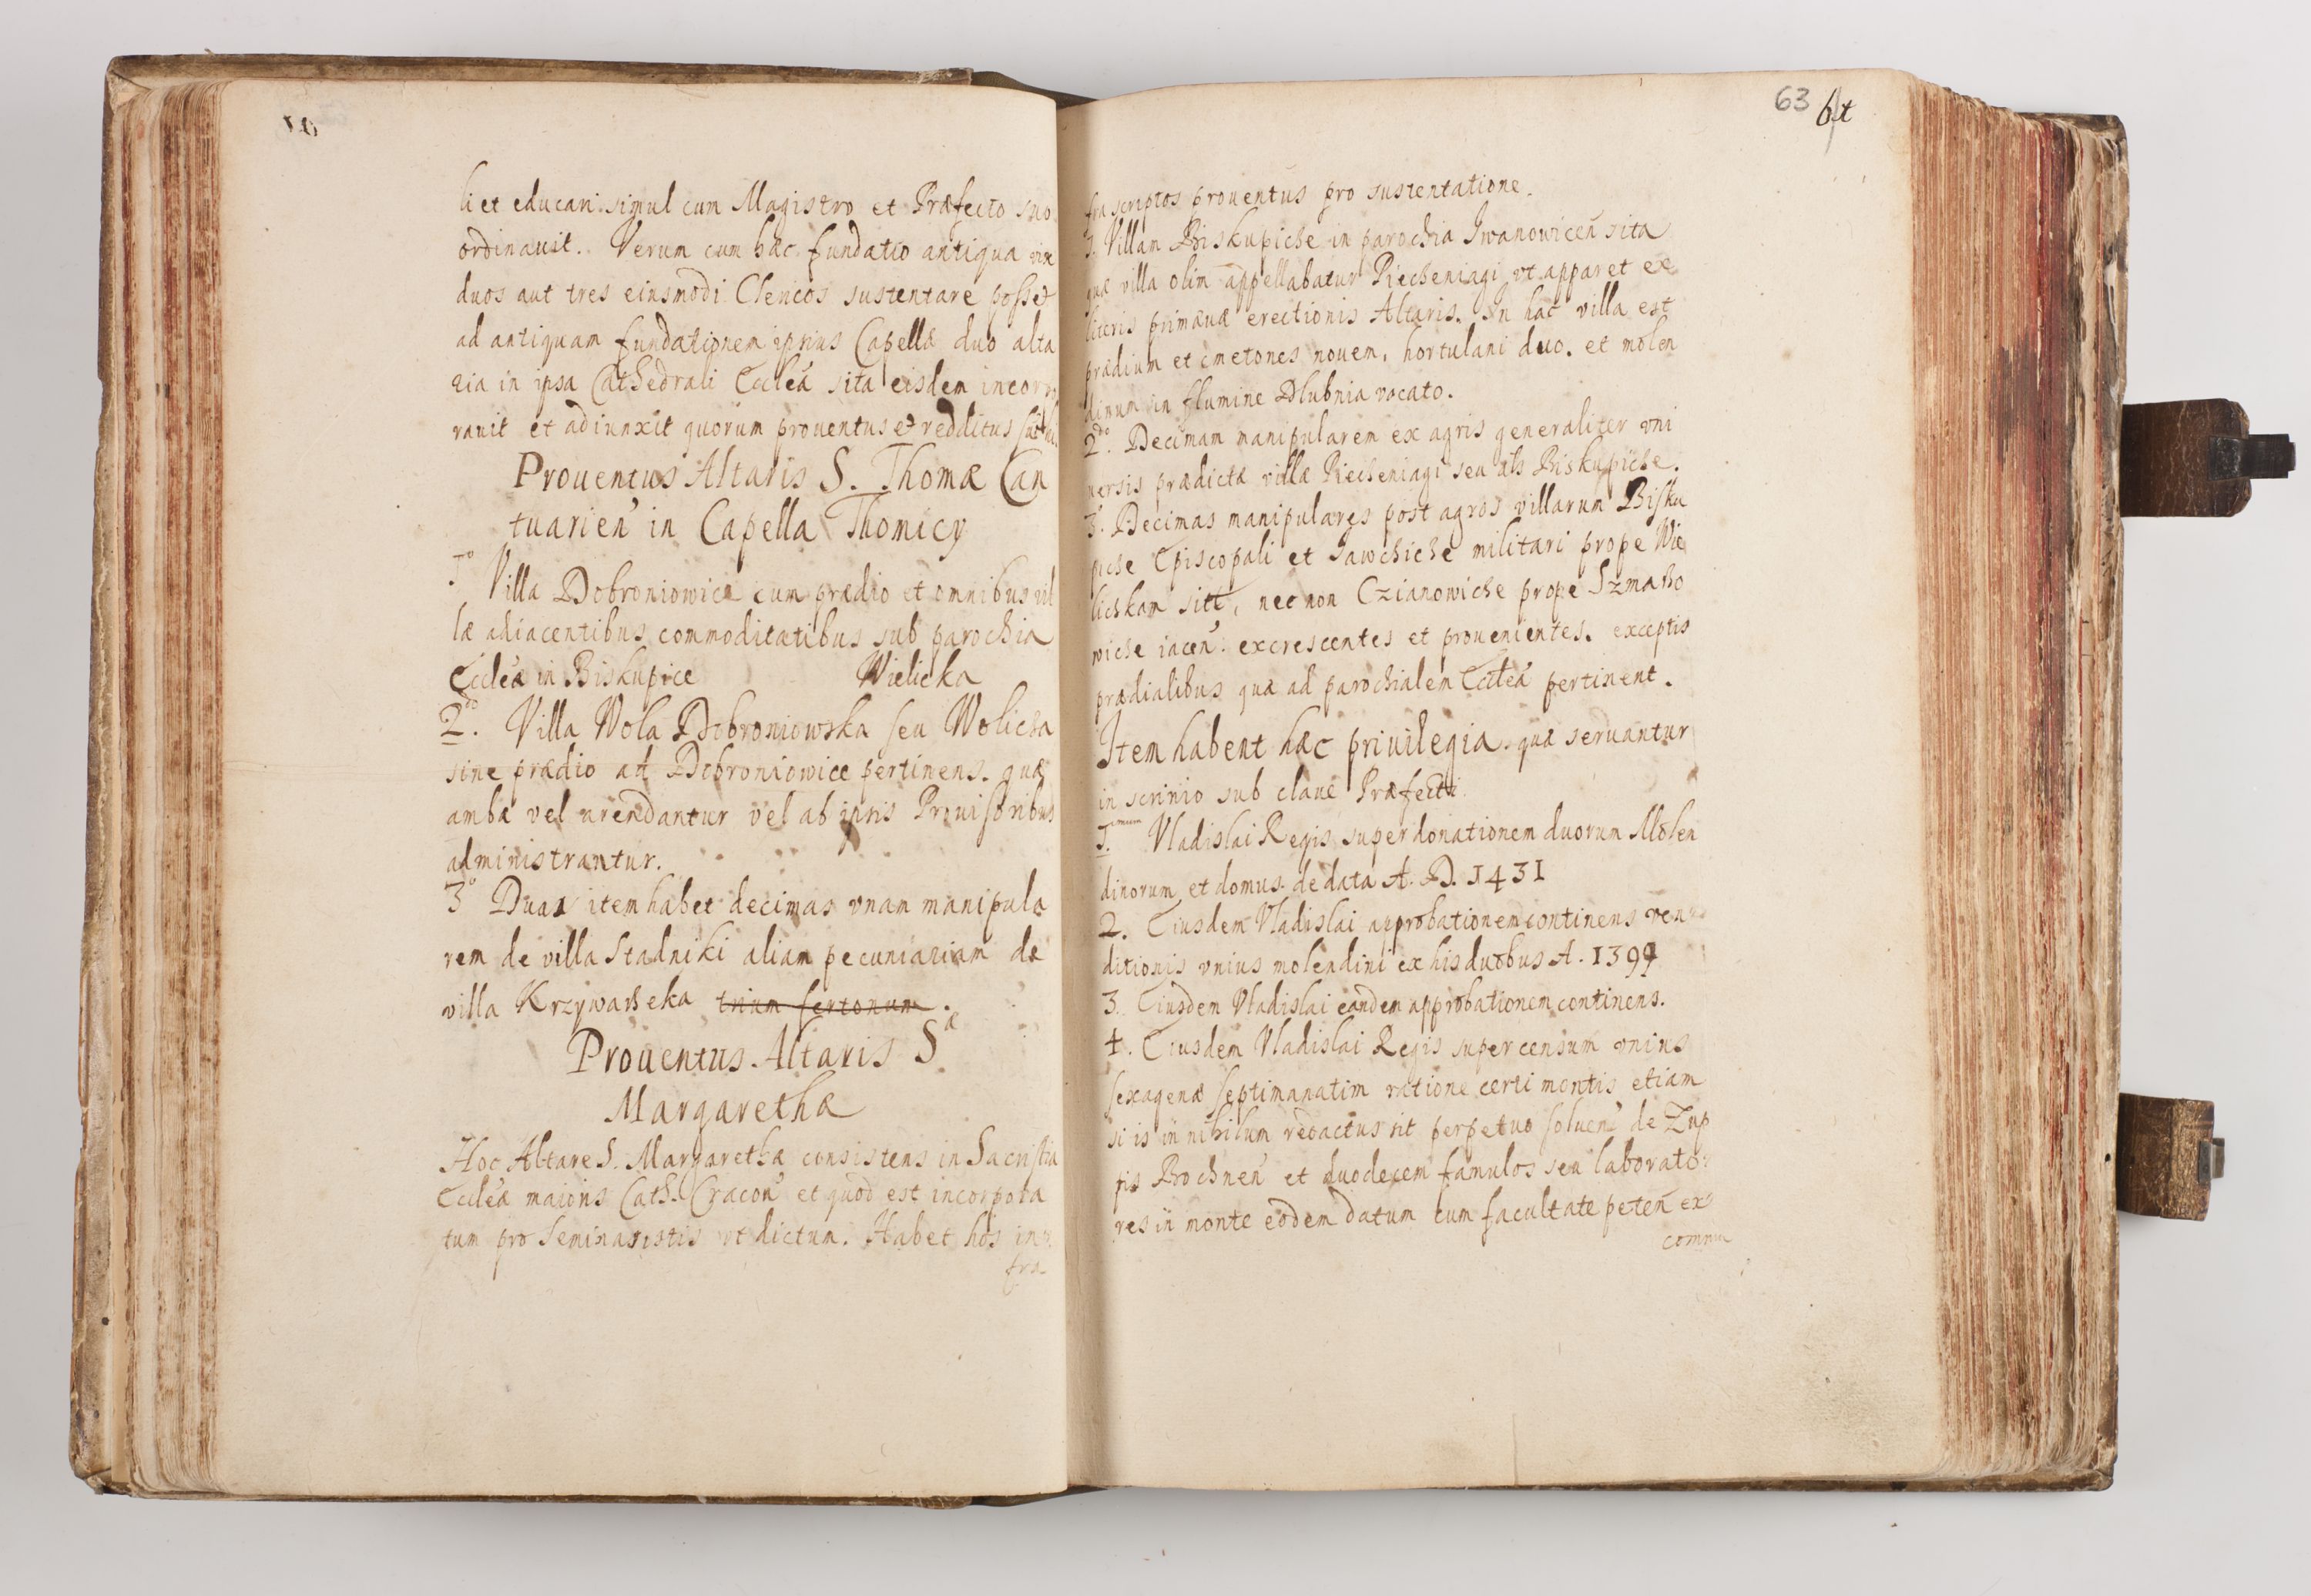 li et educari simul cum Magistro et Præfecto suo
ordinauit. Verum cum hæc fundatio antiqua vix
duos aut tres eiusmodi Clericos sustentare posset
ad antiquam fundationem ipsius Capellæ duo alta
ria in ipsa Cathedrali Eccleã sita eisdem incorpo
rauit et adiunxit quorum prouentus et redditus
Prouentus Altaris S. Thomæ Can
tuarien̄ in Capella Thomicy
1º Villa Dobroniowice cum prædio et omnibus vil
læ adiacentibus commoditatibus sub parochia
Eccleæ in Biskupice Wielicka
2do. Villa Wola Dobroniowska seu Wolicza
sine prædio ad Dobroniowice pertinens. quæ
ambæ vel arendantur vel ab ipsis Prouisoribus
administrantur.
3º Duas item habet decimas vnam manipula
rem de villa Stadniki aliam pecuniariam de
villa Krzywarzeka trium fertonum.
Prouentus Altaris Sæ
Margarethæ
Hoc Altare S. Margarethæ consistens in Sacristia
Eccleæ maioris Cath. Cracon̄ et quod est incorpora
tum pro Seminaristis vt dictum. Habet hos in
fra
63 64
fra scriptos prouentus pro sustentatione.
1. Villam Biskupicze in parochia Iwanowicen̄ sita
quæ villa olim appellabatur Piecheniagi vt apparet ex
literis primæuæ erectionis Altaris. In hac villa est
prædium et cmetones nouem, hortulani duo. et molen
dinum in flumine Dlubnia vocato.
2do. Decimam manipularem ex agris generaliter vni
uersis prædictæ villæ Piecheniagi seu als Biskupicze.
3. Decimas manipulares post agros villarum Bisku
picze Episcopali et Sawchicze militari prope Wie
liczkam sitt, nec non Czianowicze prope Szmarzo
wicze iacen̄. excrescentes et prouenientes. exceptis
prædialibus quæ ad parochialem Eccleã pertinent.
Item habent hæc priuilegia quæ seruantur
in scrinio sub claue Præfecti
1. Vladislai Regis super donationem duorum Molen
dinorum et domus. de data A. D. 1431
2. Eiusdem Vladislai approbationem continens ven
ditionis vnius molendini ex his duobus A. 1399
3. Eiusdem Vladislai eandem approbationem continens.
4. Eiusdem Vladislai Regis super censum vnius
sexagenæ septimanatim ratione certi montis etiam
si is in nihilum redactus sit perpetuo soluen̄ de Zup
pis Bochnen̄ et duodecem famulos seu laborato
res in monte eodem datum cum facultate peten̄ ex
commu